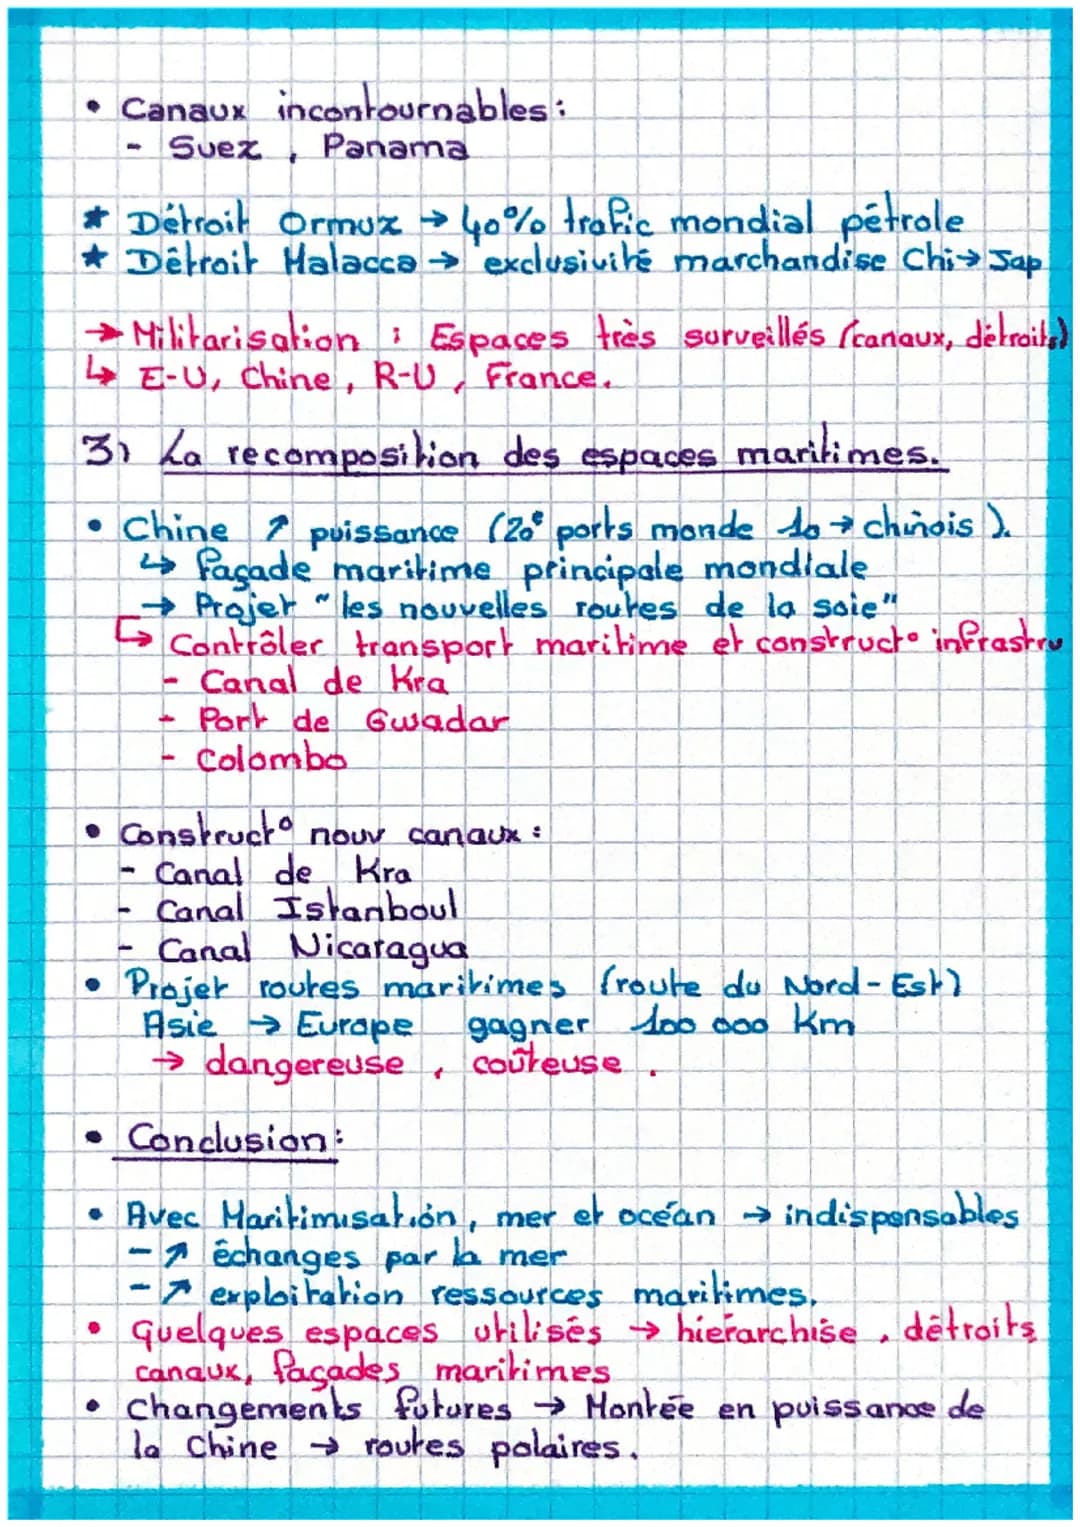 • Canaux incontournables :
- Suez, Panama
★ Détroit Ormuz → 40% trafic mondial pétrole
★ Détroit Malacca → exclusivité marchandise Chi→Jap
→ Militarisation : Espaces très surveillés (canaux, détroits)
↳ E-U, Chine, R-U, France.
3) La recomposition des espaces maritimes.
• Chine ↗ puissance (20e ports monde 10 → chinois).
↳ façade maritime principale mondiale
→ Projet "les nouvelles routes de la soie"
↳ Contrôler transport maritime et construct° infrastru
- Canal de Kra
- Port de Gwadar
- Colombo
• Construct° nouv canaux :
- Canal de Kra
- Canal Istanboul
- Canal Nicaragua
• Projet routes maritimes (route du Nord-Est)
Asie → Europe gagner 100 000 Km
→ dangereuse, coûteuse.
• Conclusion :
• Avec Maritimisation, mer et océan → indispensables
- ↗ échanges par la mer
- ↗ exploitation ressources maritimes.
• Quelques espaces utilisés → hierarchise, détroits
canaux, façades maritimes
• Changements futures → Montée en puissance de
la Chine → routes polaires.